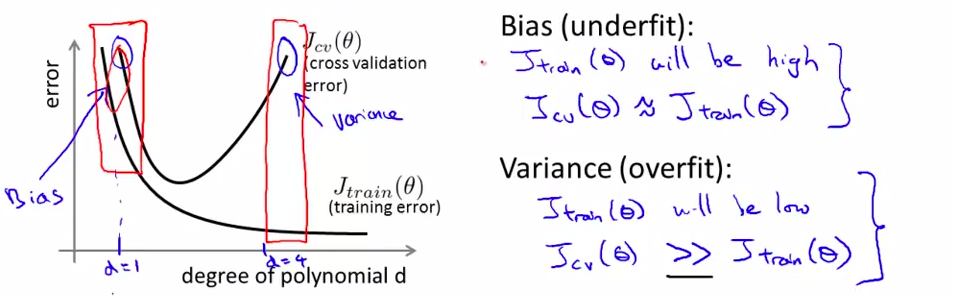 error
J_cv(θ)
(cross validation
error)
variance
Bias
J_train(θ)
(training error)
d=1
d=4
degree of polynomial d
Bias (underfit):
J_train(θ) will be high
J_cv(θ) ≈ J_train(θ)
Variance (overfit):
J_train(θ) will be low
J_cv(θ) >> J_train(θ)